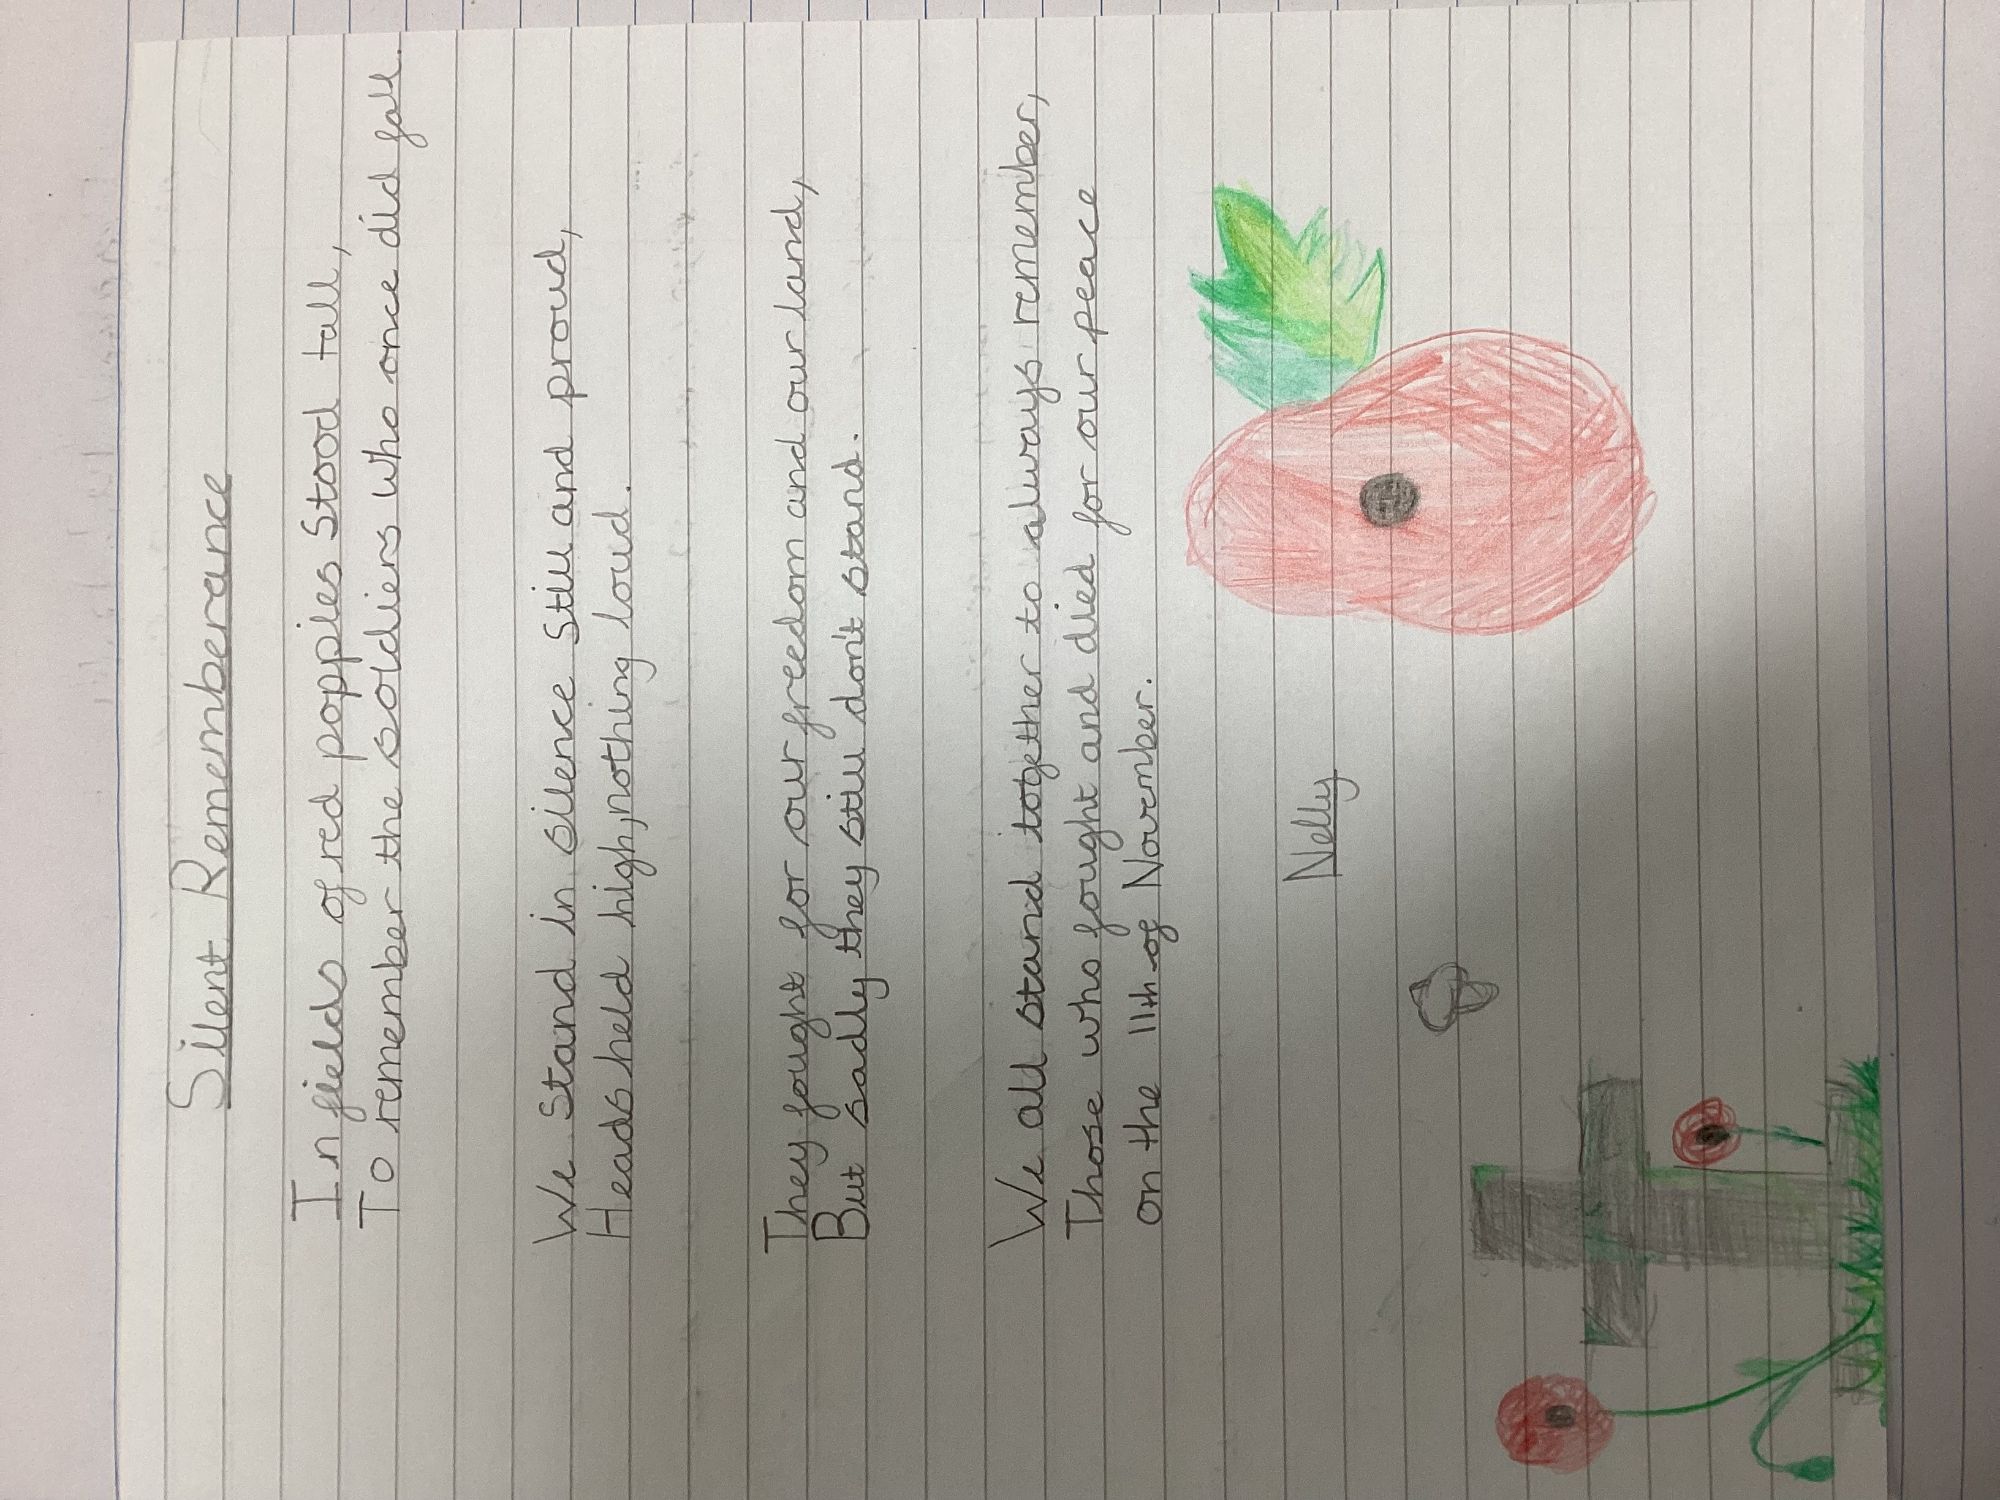 Silent Rememberance
In fields of red poppies Stood tall,
To remember the soldiers who once did fall.
We Stand in silence Still and proud,
Heads held high, nothing loud.
They fought for our freedom and our land,
But sadly they still don't stand.
We all stand together to always remember,
Those who fought and died for our peace
on the 11th of November.
Nelly